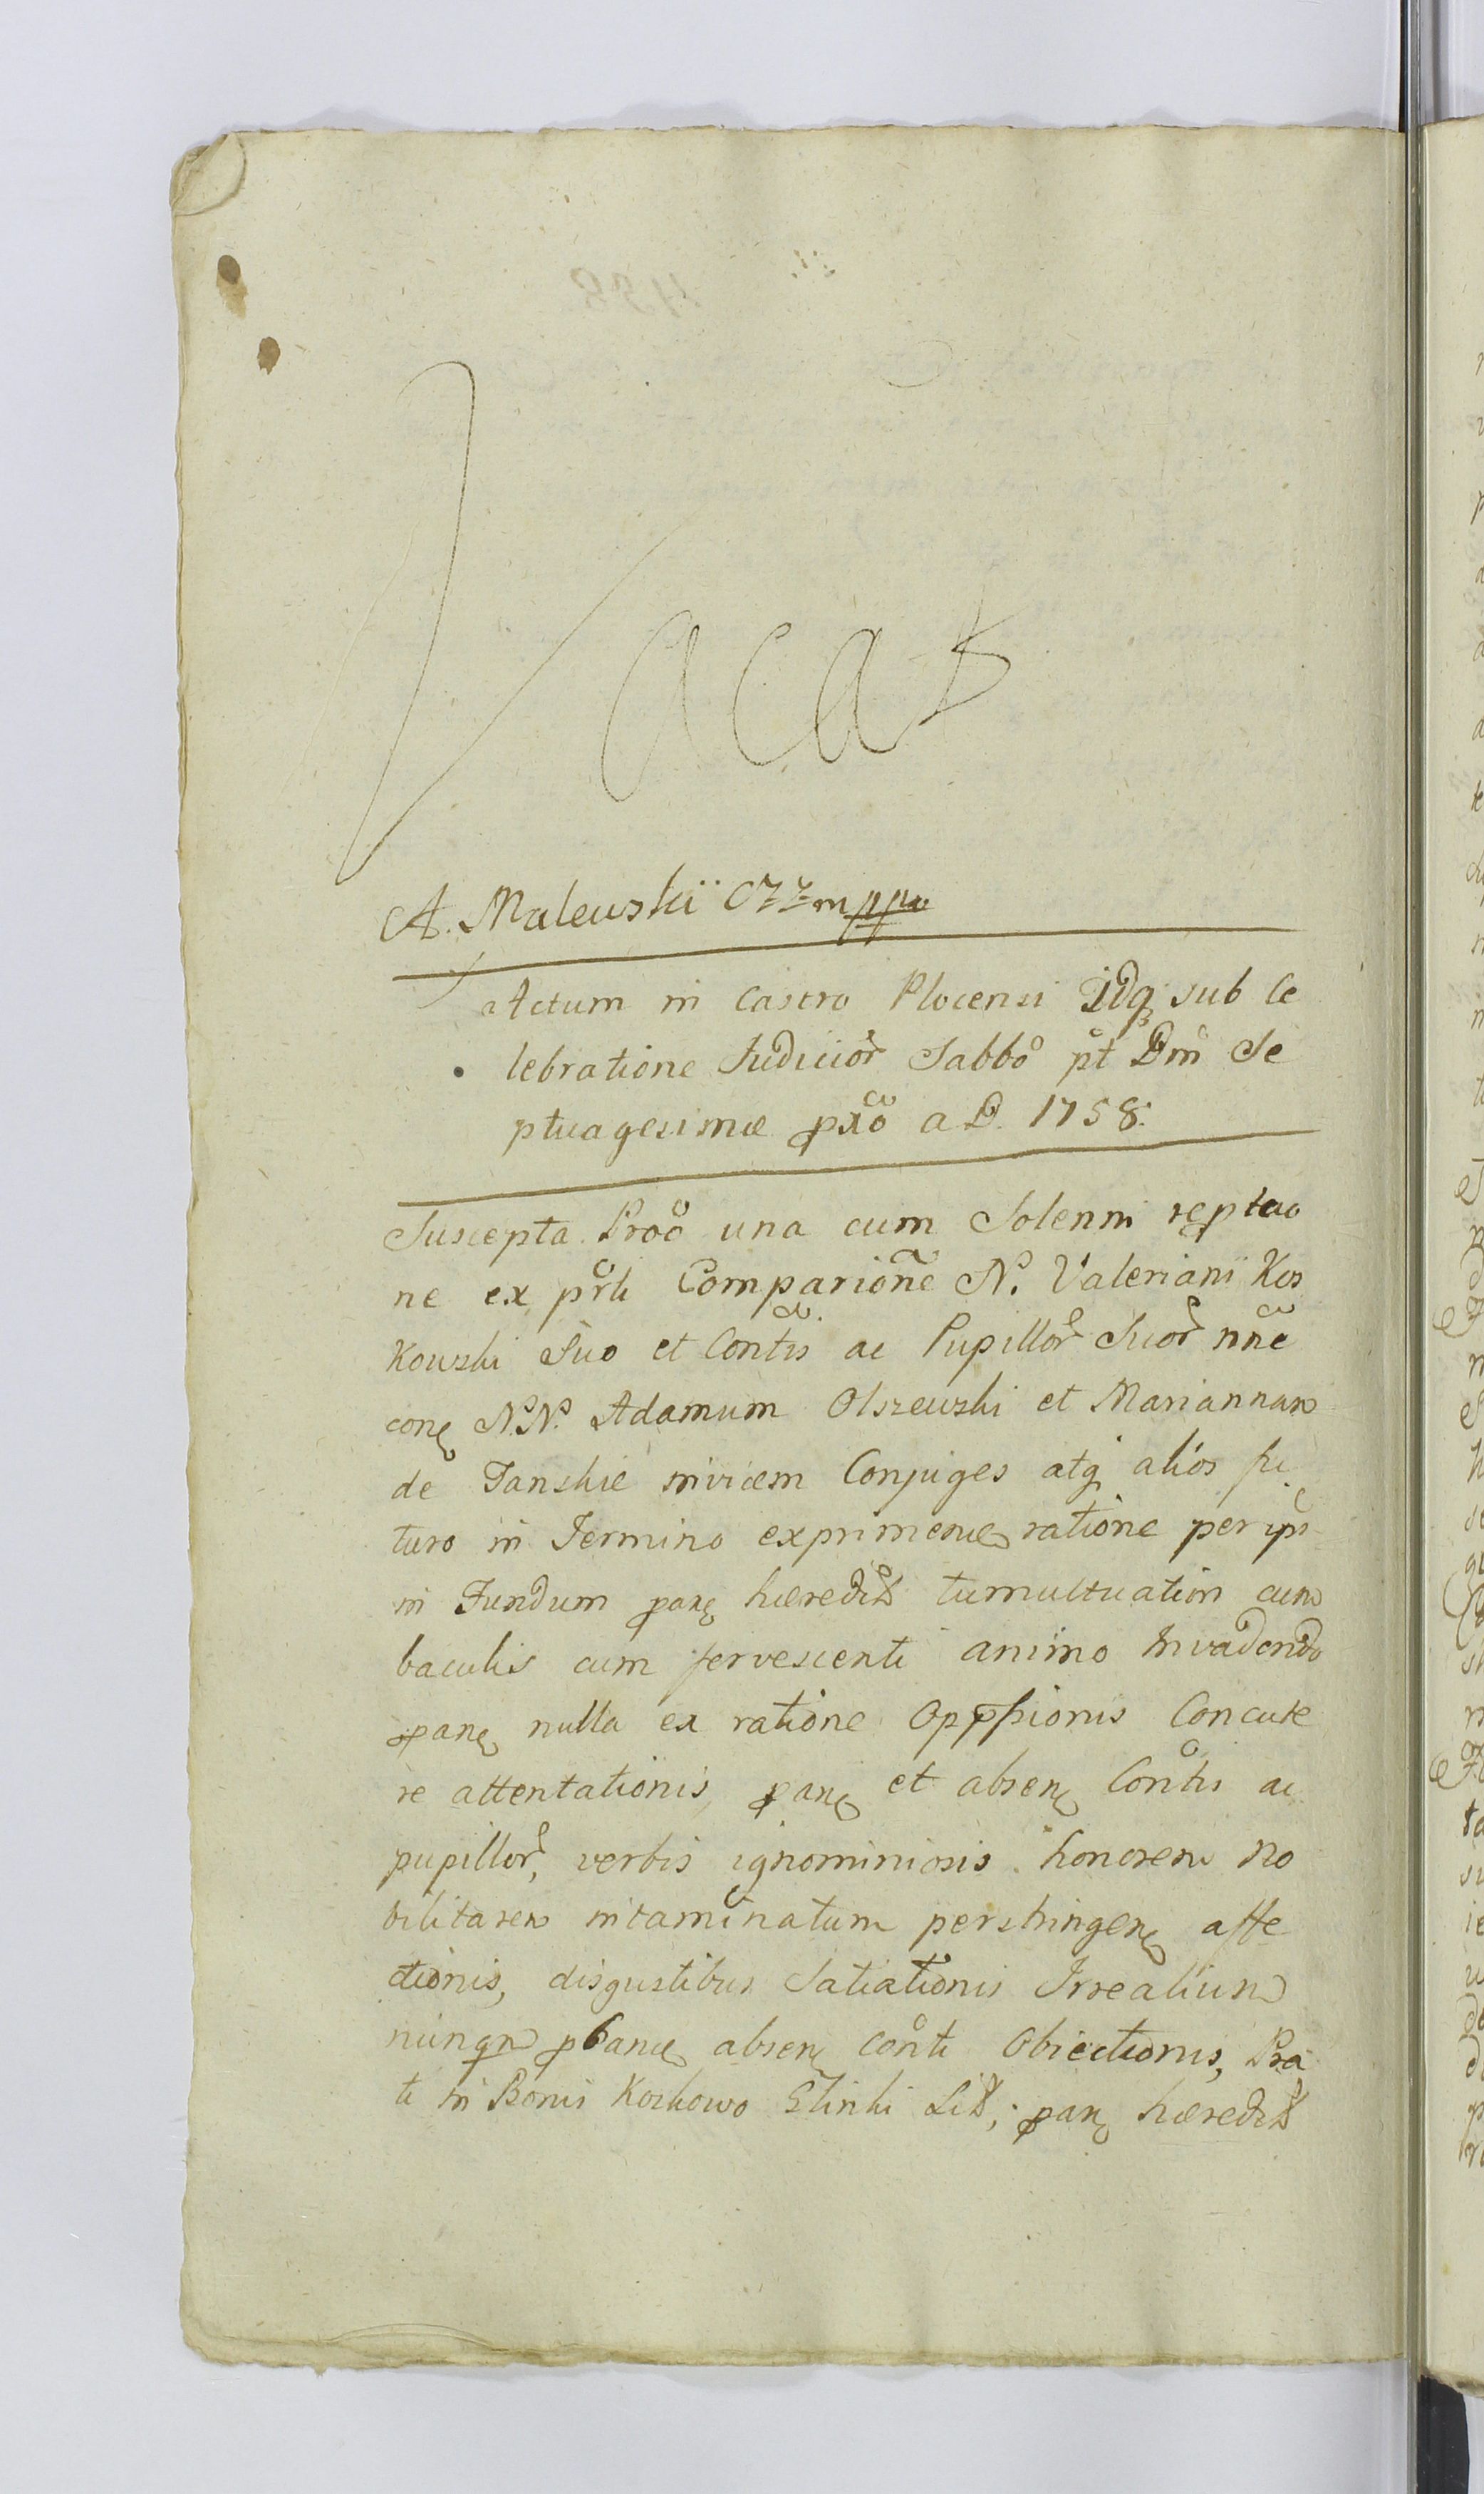 Vacat
A. Malewski mppa
Actum in Castro Plocensi Idq sub Ce
lebratione Judicior Sabbo pt Dm Se
ptuagesimæ pxo a D. 1758.
Suscepta Proo una cum Solenni reptao
ne ex prli Comparione N. Valeriani Kos
kowski Suo et Contis ac Pupillor Suor nne
conę N.N. Adamum Olszewski et Mariannam
de Tanskie invicem Conjuges atq alios fu
turo in Termino exprimenę ratione per ips
in Fundum panę hæredit tumultuatim cum
baculis cum fervescenti animo Invadendo
panę nulla ex ratione Opppsionis Concute
re attentationis, panę et absenę Contis ac
pupillor, verbis ignominiosis honorem No
bilitarem intaminatum perstringenę affe
ctionis, disgustibus Satiationis Irrealium
nunqm pbanę absenę conti Obiectionis, Pra
ti in Bonis Koskowo Glinki Lit; panę hæredit